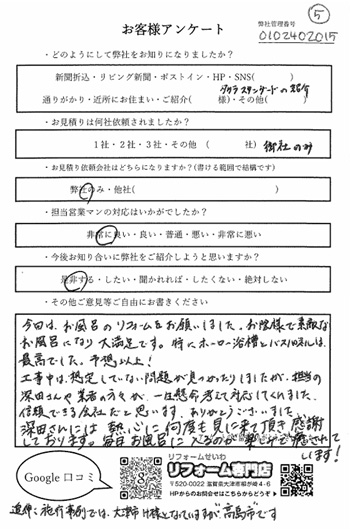 ⑤
お客様アンケート
弊社管理番号
0102402015
・どのようにして弊社をお知りになりましたか？
新聞折込・リビング新聞・ポストイン・HP・SNS( )
通りがかり・近所にお住まい・ご紹介( 様)・その他( )
タカラスタンダードの紹介
・お見積りは何社依頼されましたか？
1社・2社・3社・その他 ( 社) 御社のみ
・お見積り依頼会社はどちらになりますか？(書ける範囲で結構です)
弊社のみ・他社( )
・担当営業マンの対応はいかがでしたか？
非常に良い・良い・普通・悪い・非常に悪い
・今後お知り合いに弊社をご紹介しようと思いますか？
是非する・したい・聞かれれば・したくない・絶対しない
・その他ご意見等ご自由にお書きください
今回は、お風呂のリフォームをお願いしました。お陰様で素敵な
お風呂になり大満足です。特にホーロー浴槽とバスパネルは、
最高でした。予想以上！
工事中は、想定していない問題が見つかりましたが、担当の
深田さんや業者の方々が、一生懸命考えて対応してくれました。
信頼できる会社だと思います。ありがとうございました。
深田さんには 熱心に何度も見に来て頂き感謝
しております。毎日お風呂に入るのが 楽しみで癒されて
います！
Google口コミ
リフォームせいわ
リフォーム専門店
〒520-0022 滋賀県大津市柳が崎4-6
HPからのお問合せはこちらからどうぞ
追伸：施行事例では、大津市H様となっていますが、高島市です